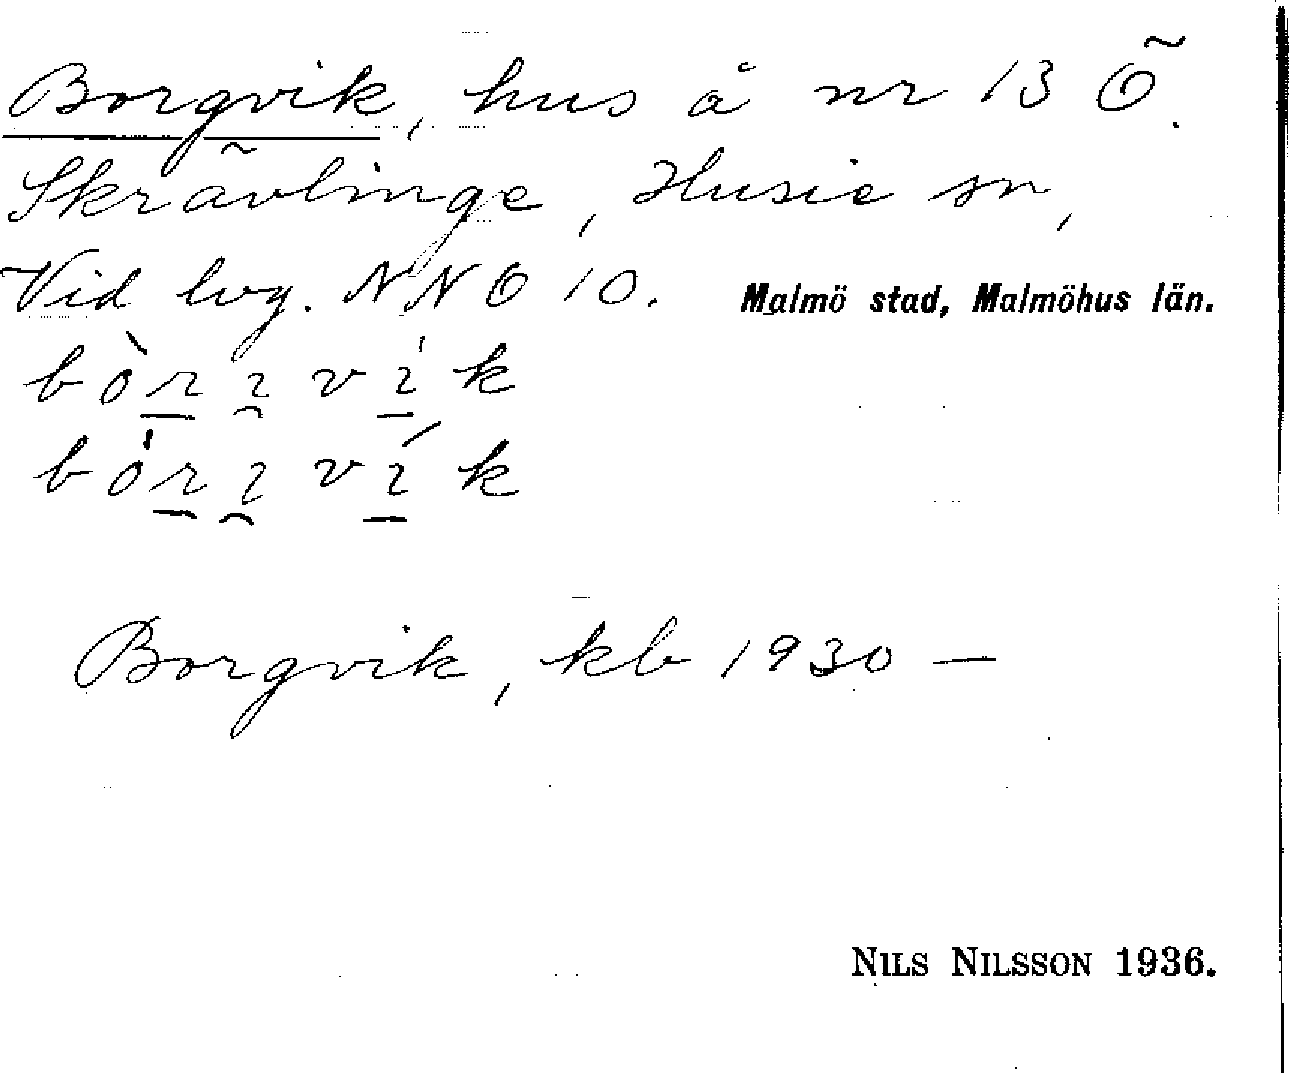 Borgvik, hus å nr 13 Ö.
Skrävlinge, Husie sn,
Vid lvg. NNÖ 10. Malmö stad, Malmöhus län.
Borgvik, kb 1930 —
NILS NILSSON 1936.